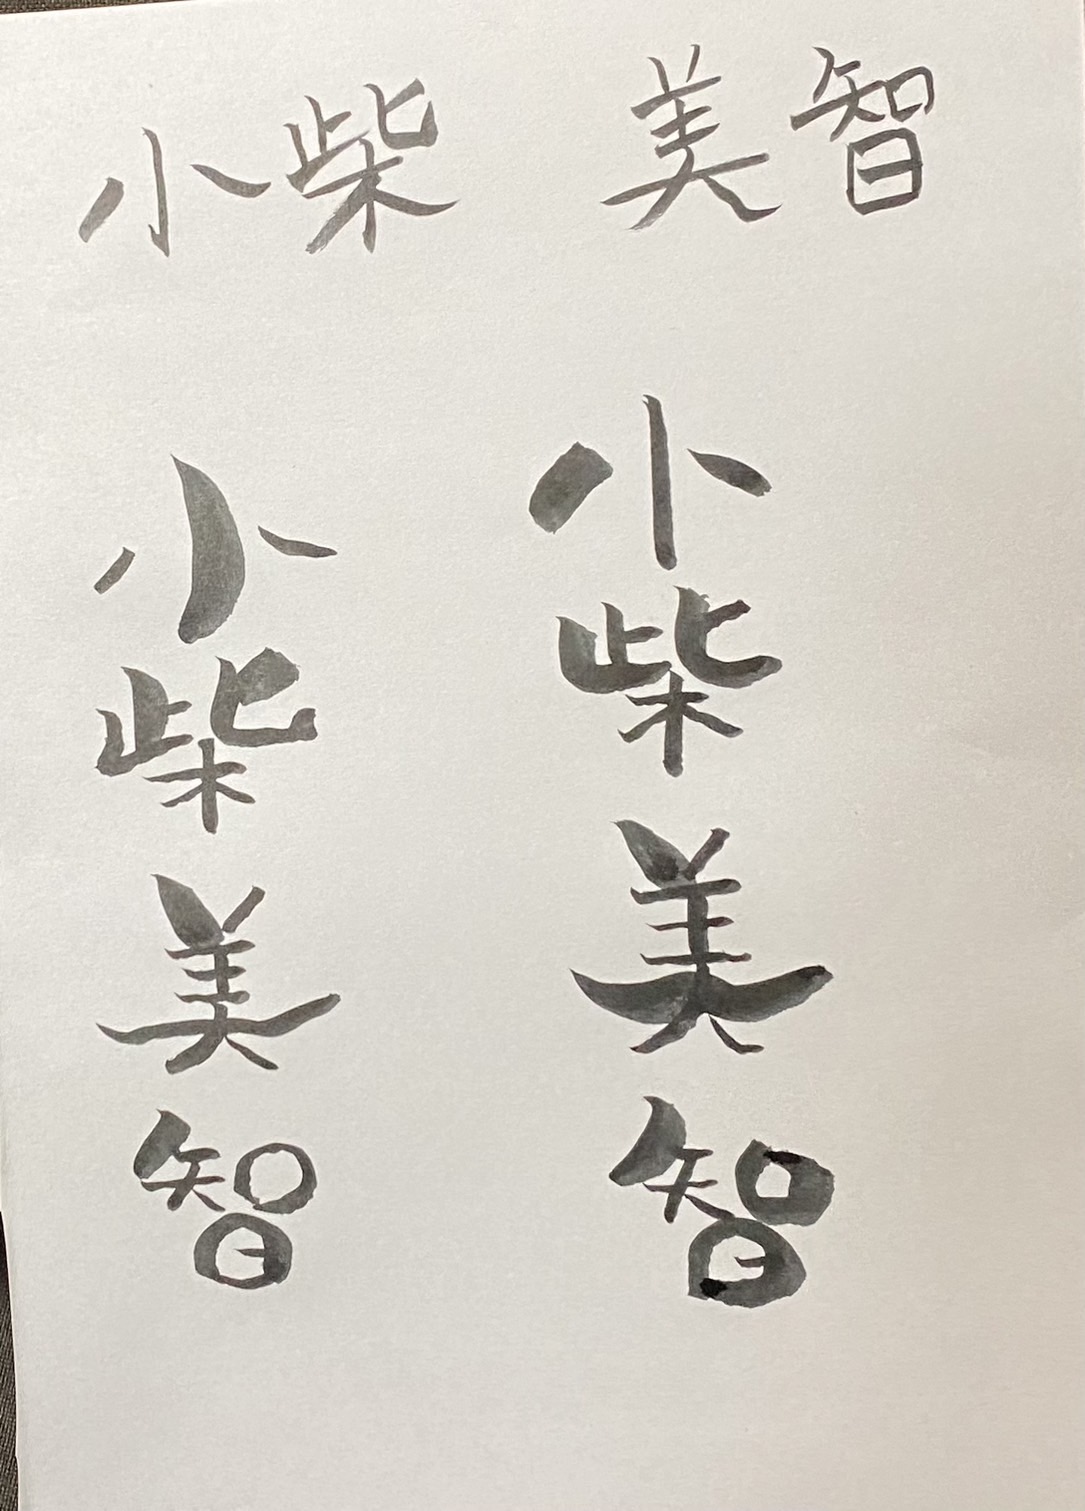 小柴 美智
小柴美智
小柴美智